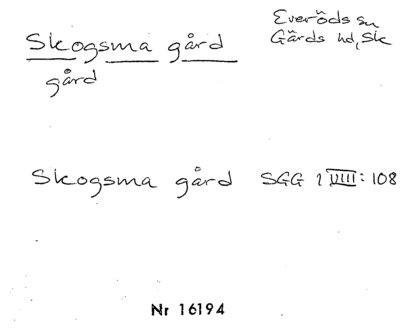 Skogsma gård
gård
Everöds sn
Gärds hd, Sk
Skogsma gård SGG 1 VIII: 108
Nr 16194